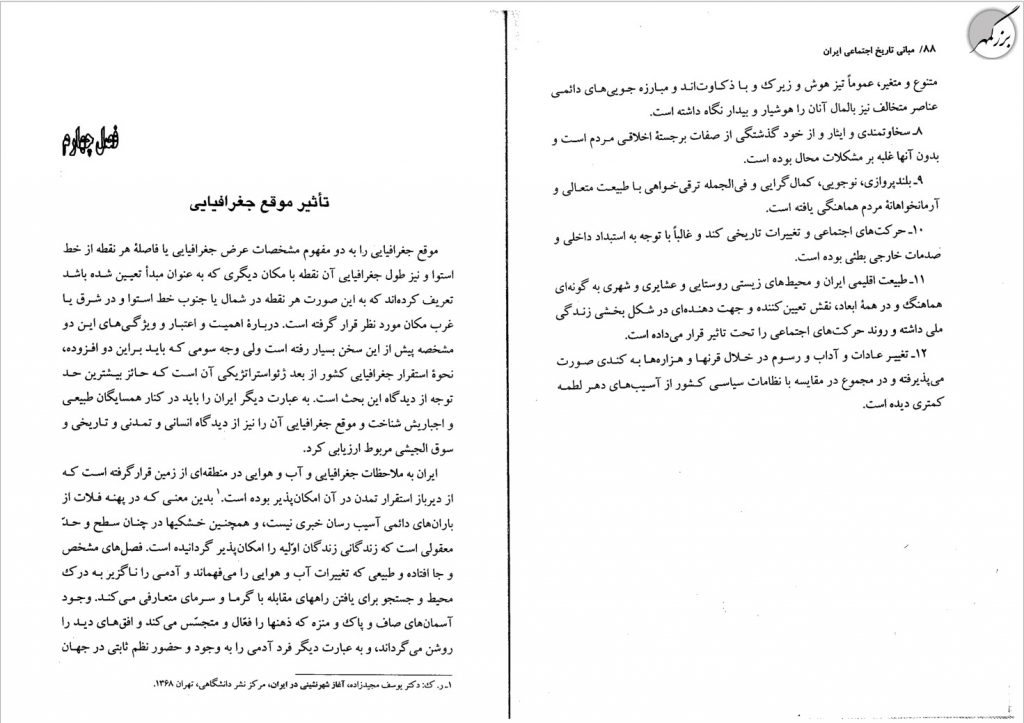 بزرگمهر
۸۸/ مبانی تاریخ اجتماعی ایران
متنوع و متغیر، عموماً تیز هوش و زیرک و با ذکاوت‌اند و مبارزه جویی‌های دائمی
عناصر متخالف نیز بالمال آنان را هوشیار و بیدار نگاه داشته است.
۸ـ سخاوتمندی و ایثار و از خود گذشتگی از صفات برجستهٔ اخلاقی مردم است و
بدون آنها غلبه بر مشکلات محال بوده است.
۹ـ بلندپروازی، نوجویی، کمال‌گرایی و فی‌الجمله ترقی‌خواهی با طبیعت متعالی و
آرمانخواهانهٔ مردم هماهنگی یافته است.
۱۰ـ حرکت‌های اجتماعی و تغییرات تاریخی کند و غالباً با توجه به استبداد داخلی و
صدمات خارجی بطئی بوده است.
۱۱ـ طبیعت اقلیمی ایران و محیط‌های زیستی روستایی و عشایری و شهری به گونه‌ای
هماهنگ و در همهٔ ابعاد، نقش تعیین‌کننده و جهت دهنده‌ای در شکل بخشی زندگی
ملی داشته و روند حرکت‌های اجتماعی را تحت تاثیر قرار می‌داده است.
۱۲ـ تغییر عادات و آداب و رسوم در خلال قرنها و هزاره‌ها به کندی صورت
می‌پذیرفته و در مجموع در مقایسه با نظامات سیاسی کشور از آسیب‌های دهر لطمه
کمتری دیده است.
فصل چهارم
تأثیر موقع جغرافیایی
موقع جغرافیایی را به دو مفهوم مشخصات عرض جغرافیایی یا فاصلهٔ هر نقطه از خط
استوا و نیز طول جغرافیایی آن نقطه با مکان دیگری که به عنوان مبدأ تعیین شده باشد
تعریف کرده‌اند که به این صورت هر نقطه در شمال یا جنوب خط استوا و در شرق یا
غرب مکان مورد نظر قرار گرفته است. دربارهٔ اهمیت و اعتبار و ویژگی‌های این دو
مشخصه پیش از این سخن بسیار رفته است ولی وجه سومی که باید براین دو افزوده،
نحوهٔ استقرار جغرافیایی کشور از بعد ژئواستراتژیکی آن است که حائز بیشترین حد
توجه از دیدگاه این بحث است. به عبارت دیگر ایران را باید در کنار همسایگان طبیعی
و اجباریش شناخت و موقع جغرافیایی آن را نیز از دیدگاه انسانی و تمدنی و تاریخی و
سوق الجیشی مربوط ارزیابی کرد.
ایران به ملاحظات جغرافیایی و آب و هوایی در منطقه‌ای از زمین قرارگرفته است که
از دیرباز استقرار تمدن در آن امکان‌پذیر بوده است.۱ بدین معنی که در پهنه فلات از
باران‌های دائمی آسیب رسان خبری نیست، و همچنین خشکیها در چنان سطح و حدّ
معقولی است که زندگانی زندگان اوّلیه را امکان‌پذیر گردانیده است. فصل‌های مشخص
و جا افتاده و طبیعی که تغییرات آب و هوایی را می‌فهماند و آدمی را ناگزیر به درک
محیط و جستجو برای یافتن راههای مقابله با گرما و سرمای متعارفی می‌کند. وجود
آسمان‌های صاف و پاک و منزه که ذهنها را فعّال و متجسّس می‌کند و افق‌های دید را
روشن می‌گرداند، و به عبارت دیگر فرد آدمی را به وجود و حضور نظم ثابتی در جهان
۱ـ ر. ک: دکتر یوسف مجیدزاده، آغاز شهرنشینی در ایران، مرکز نشر دانشگاهی، تهران ۱۳۶۸.